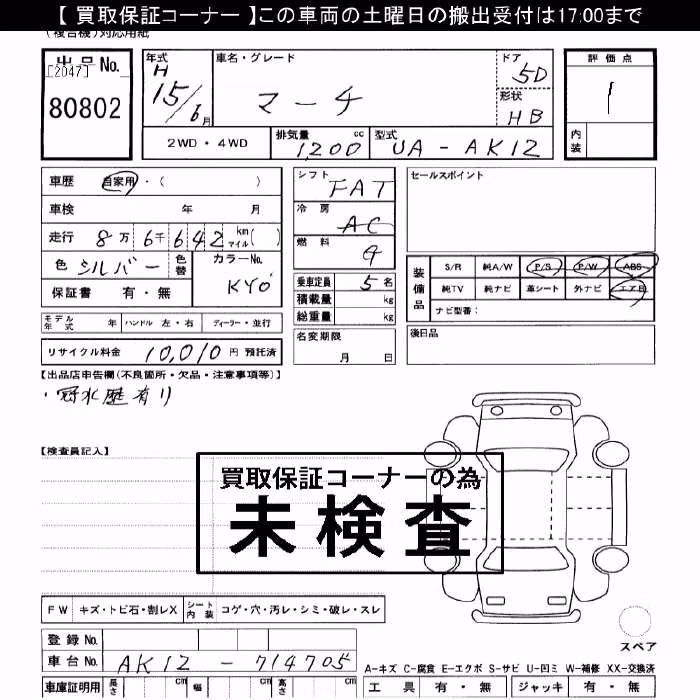 【 買取保証コーナー 】この車両の土曜日の搬出受付は17:00まで
(複合機)対応用紙
出品No.
[2047]
80802
年式
H
15/6月
車名・グレード
マーチ
ドア
5D
形状
HB
評価点
1
内装
2WD・4WD
排気量 cc
1,200
型式
UA-AK12
車歴 自家用・( )
車検 年 月
走行 8万6千642 km マイル( )
色 シルバー 色替
カラーNo.
KY0
保証書 有・無
シフト
FAT
冷房
AC
燃料
ガ
乗車定員 5名
積載量 kg
総重量 kg
セールスポイント
装備品
S/R 純A/W P/S P/W ABS
純TV 純ナビ 革シート 外ナビ エアB
ナビ型番:
モデル年式 年 ハンドル 左・右 ディーラー・並行
リサイクル料金 10,010 円 預託済
名変期限
月 日
後日品
【出品店申告欄(不良箇所・欠品・注意事項等)】
・冠水歴有り
【検査員記入】
買取保証コーナーの為
未検査
FW キズ・トビ石・割レX シート内装 コゲ・穴・汚レ・シミ・破レ・スレ
スペア
登録No.
車台No. AK12-714705
A-キズ C-腐食 E-エクボ S-サビ U-凹ミ W-補修 XX-交換済
車庫証明用 長さ cm 幅 cm 高さ cm
工具 有・無 ジャッキ 有・無